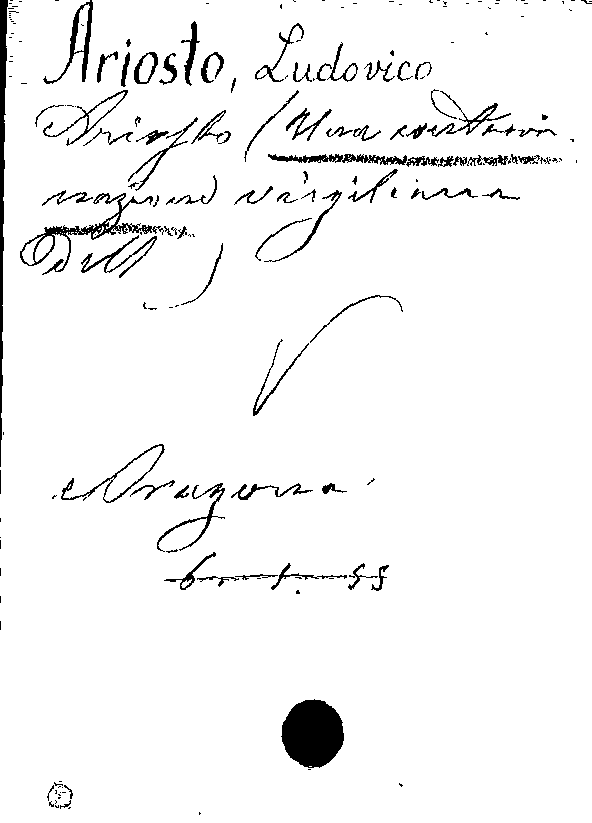 Ariosto, Ludovico
Ariosto (Una contami-
nazione virgiliana
Dell' )
Aragona
6. 1. 55